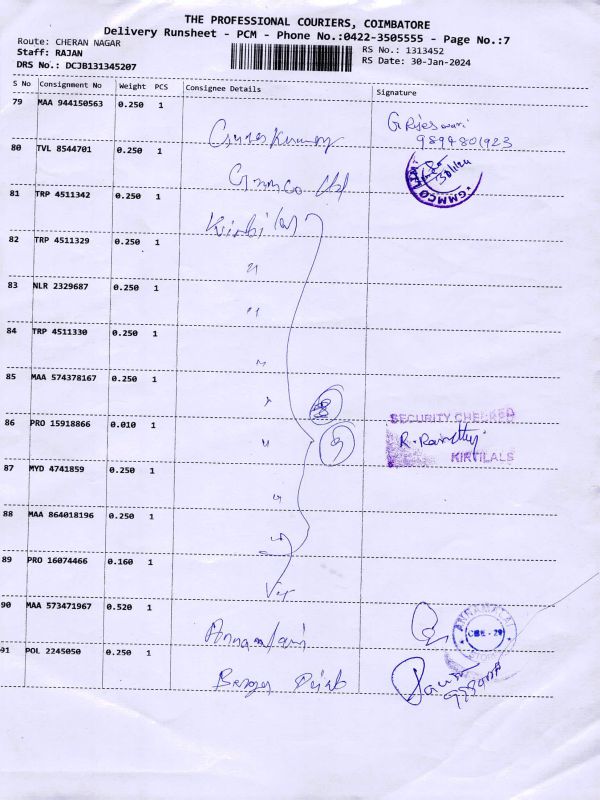 THE PROFESSIONAL COURIERS, COIMBATORE
Delivery Runsheet - PCM - Phone No.:0422-3505555 - Page No.:7
Route: CHERAN NAGAR
RS No.: 1313452
Staff: RAJAN
RS Date: 30-Jan-2024
DRS No.: DCJB131345207
S No Consignment No Weight PCS Consignee Details Signature
79 MAA 944150563 0.250 1
9894801923
80 TVL 8544701 0.250 1
Gmmco Ltd
GMMCO
81 TRP 4511342 0.250 1
82 TRP 4511329 0.250 1
83 NLR 2329687 0.250 1
84 TRP 4511330 0.250 1
85 MAA 574378167 0.250 1
86 PRO 15918866 0.010 1
SECURITY CHECKED
KIRTILALS
87 MYD 4741859 0.250 1
88 MAA 864018196 0.250 1
89 PRO 16074466 0.160 1
90 MAA 573471967 0.520 1
CBE - 29
91 POL 2245050 0.250 1